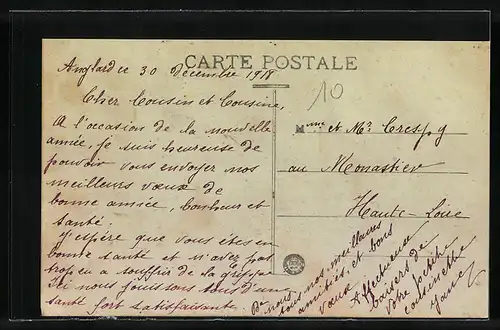 CARTE POSTALE
Anglard le 30 décembre 1918
Cher Cousin et Cousine,
A l'occasion de la nouvelle
année, je suis heureuse de
pouvoir vous envoyer nos
meilleurs vœux de
bonne année, bonheur et
santé.
J'espère que vous êtes en
bonne santé et n'avez pas
trop eu a souffrir de la grippe
Ici nous jouissons tous d'une
santé fort satisfaisante.
De nous
tous nos meilleures
amitiés, et bons
vœux
Affectueux
baisers de
votre petite
cousinette
10
Mme et Mr Crespy
au Monastier
Haute-Loire